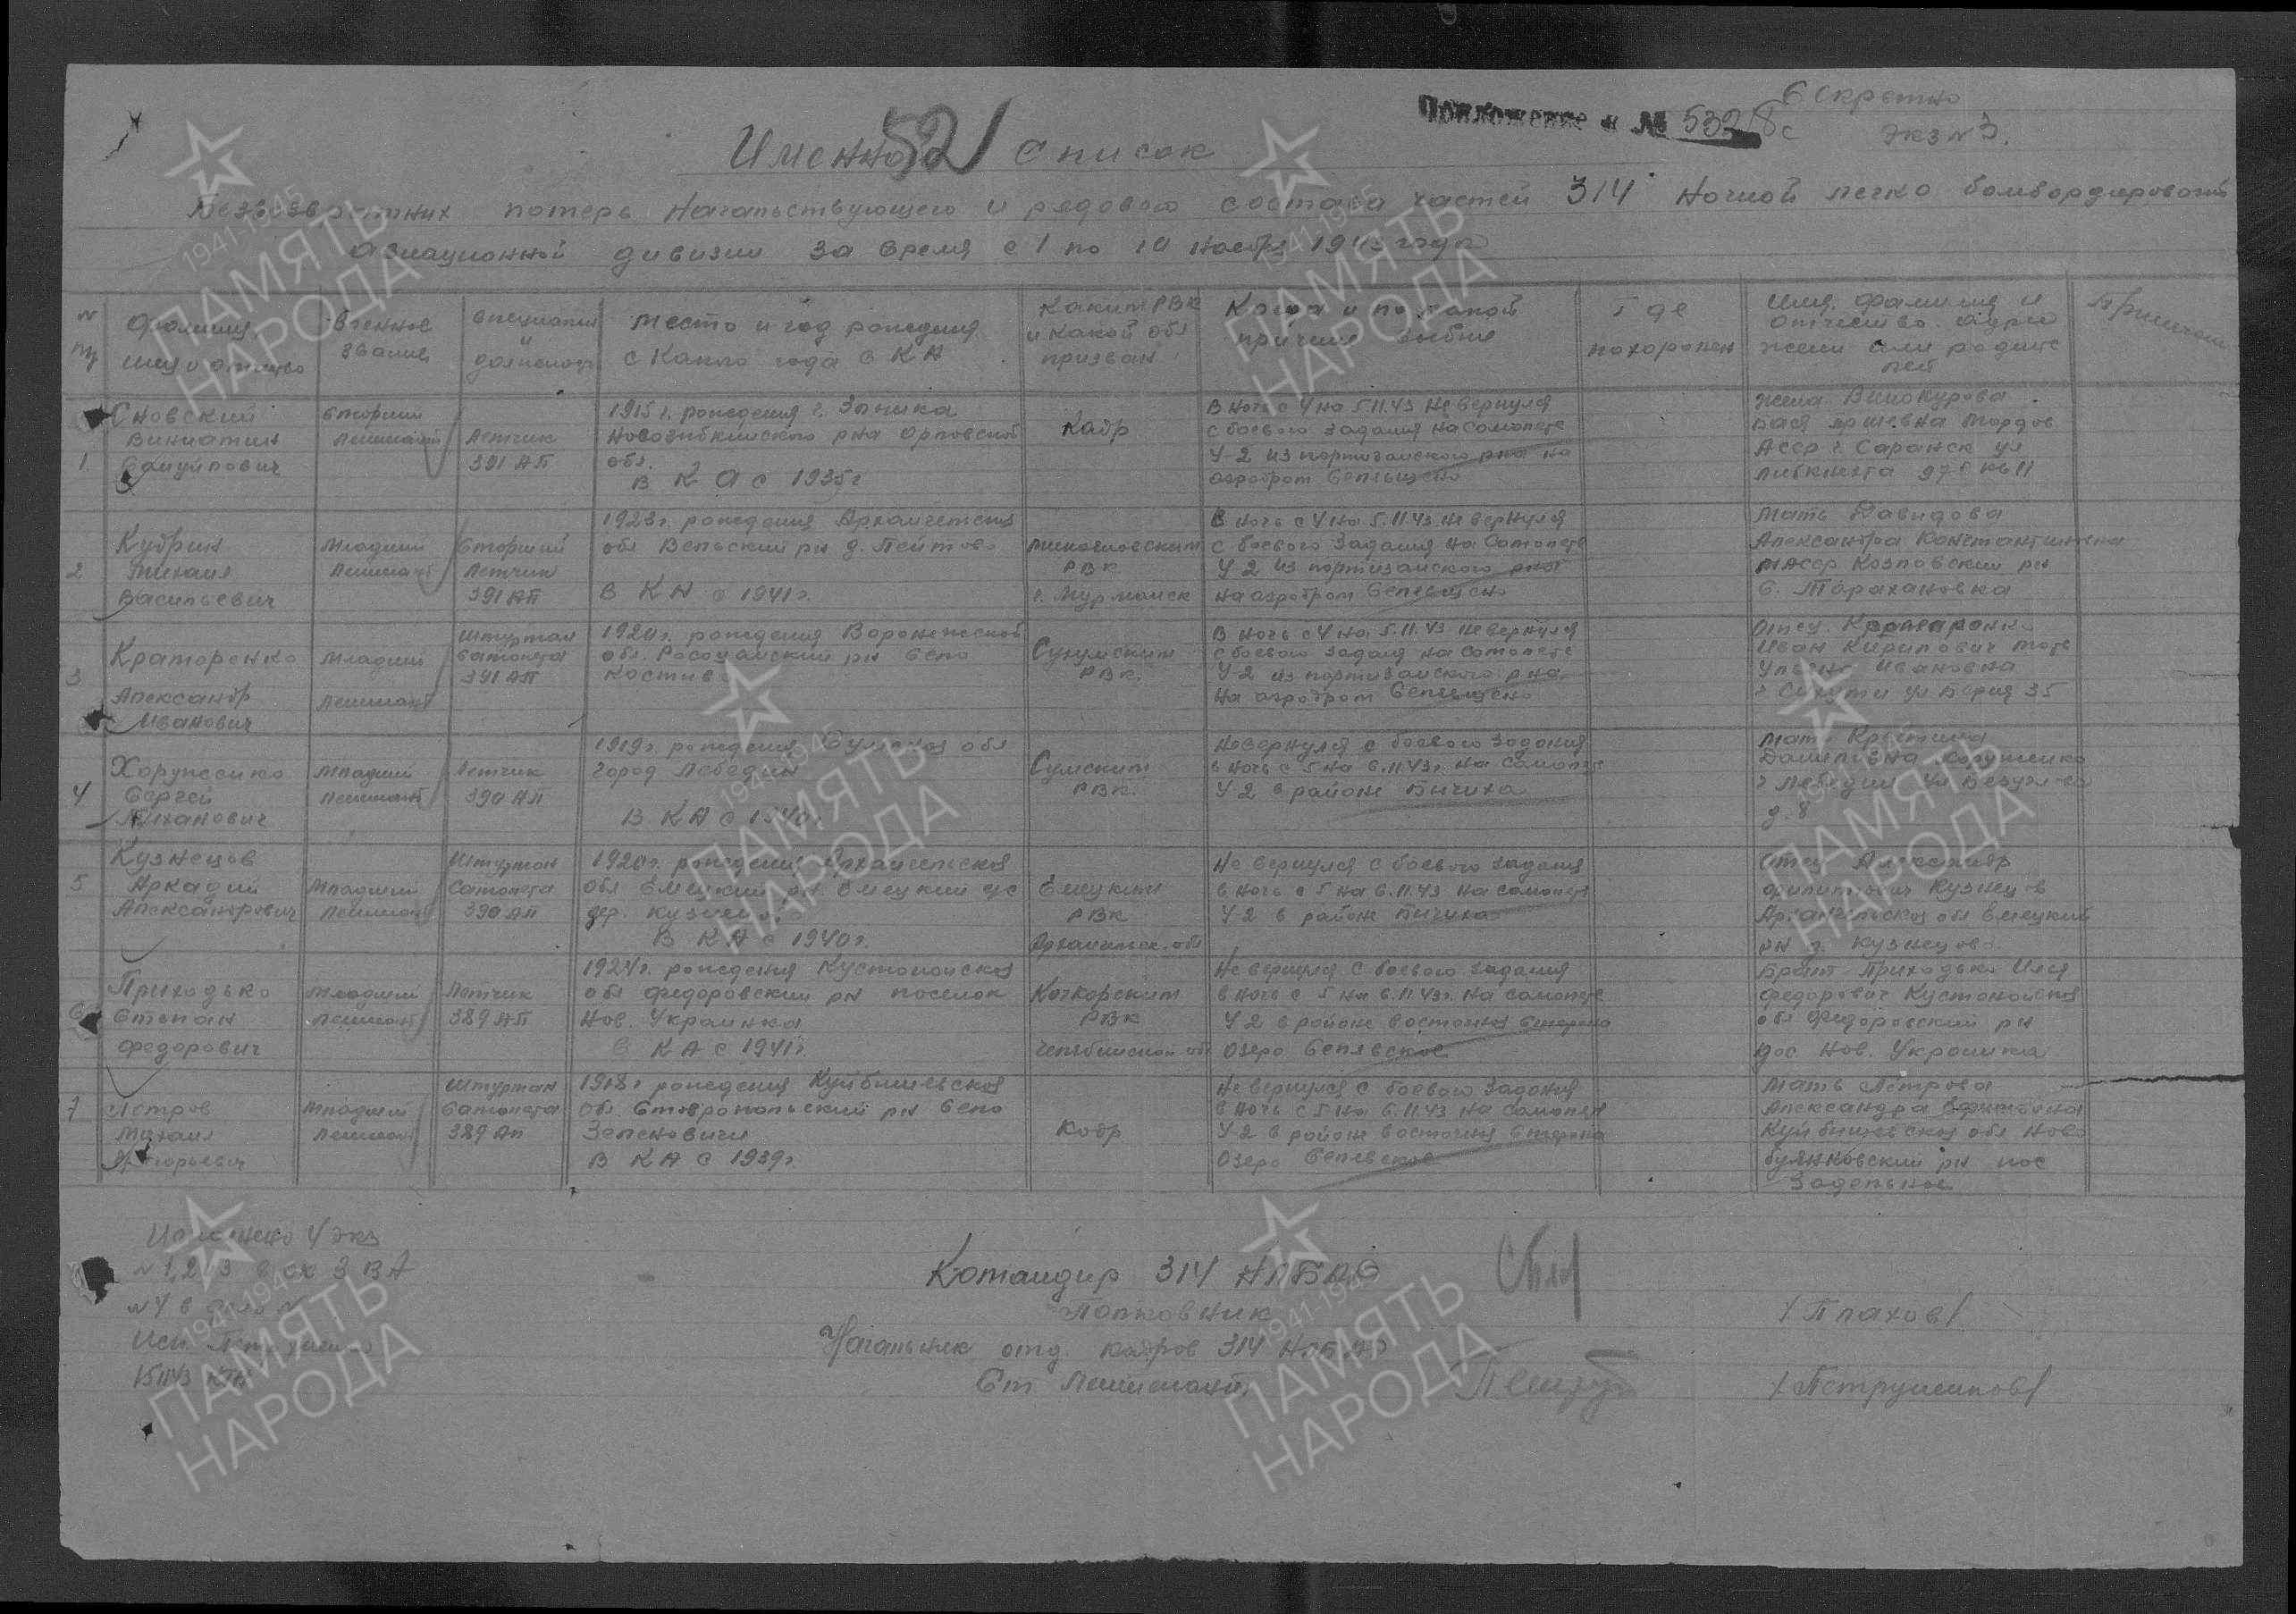 Секретно
Приложение к № 53218с
экз N 3.
Именно 521 список
Безвозвратных потерь Начальствующего и рядового состава частей 314 Ночной легко бомбордировочной
авиационной дивизии за время с 1 по 10 ноября 1943 года
N пп
Фамилия, имя и отчество
Военное звание
Специальн и должность
Место и год рождения с какого года в КА
Каким РВК и какой обл призван
Когда и по какой причине выбыл
Где похоронен
Имя, фамилия и отчество. адрес жены или родителей
Примечан
1.
Сновский
Самуилович
Старший Лейтенант
Летчик 391 АП
1915 г. рождения г. Злынка
Новозыбкинского р-на Орловской
обл.
в К А с 1935 г
Кадр
В ночь с 4 на 5.11.43 Не вернулся
с боевого задания на самолете
У-2 из партизанского р-на на
аэродром Селищено
жена Винокурова
Мордов
Асср г. Саранск ул
Либкнехта
2
Кудрин
Михаил
Васильевич
Младший Лейтенант
Старший Летчик 391 АП
1923 г. рождения Архангельская
обл Вельский рн д.
В КА с 1941 г.
РВК
г. Мурманск
В ночь с 4 на 5.11.43 не вернулся
с боевого задания на самолете
У 2 из партизанского р-на
на аэродром Селищено
мать Давидова
Александра Константиновна
МАсср Козловский рн
с. Тарахановка
3
Краморенко
Александр
Иванович
Младший Лейтенант
Штурман самолета 391 АП
1920 г. рождения Воронежской
обл. Россошанский рн село
Сухумским РВК.
В ночь с 4 на 5.11.43 не вернулся
с боевого задания на самолете
У-2 из партизанского р-на
на аэродром Селищено
Отец
Иван Кирилович мать
Ульяна Ивановна
г Сухуми ул Берия 35
4
Хоруженко
Сергей
Младший Лейтенант
Летчик 390 АП
1919 г. рождения Сумской обл
город Лебедин
В КА с 1940 г.
Сумским РВК.
Не вернулся с боевого задания
в ночь с 5 на 6.11.43 г. на самолете
У 2 в районе Бычиха
мать Кристина
Даниловна Хоруженко
г Лебедин ул
д. 8
5
Кузнецов
Аркадий
Александрович
Младший Лейтенант
Штурман самолета 390 АП
1920 г. рождения Архангельская
обл Емецкий рн. Емецкий с/с
дер. Кузнецово
В КА с 1940 г.
Емецким РВК
Архангельск. обл
Не вернулся с боевого задания
в ночь с 5 на 6.11.43 на самолете
У 2 в районе Бычиха
Отец Александр
Филиппович Кузнецов
Архангельской обл Емецкий
рн д. Кузнецово
6
Приходько
Степан
Федорович
Младший Лейтенант
Летчик 389 АП
1921 г. рождения Кустанайская
обл Федоровский рн поселок
Нов. Украинка
в КА с 1941 г.
Качкарским РВК
Челябинской обл
Не вернулся с боевого задания
в ночь с 5 на 6.11.43 г. на самолете
У 2 в районе восточная сторона
Озеро
Брат Приходько Илья
Федорович Кустанайская
обл Федоровский рн
пос Нов. Украинка
7
Петров
Михаил
Григорьевич
Младший Лейтенант
Штурман самолета 389 Ап
1918 г рождения Куйбышевская
Обл. Ставропольский рн село
Зеленовичи
В КА с 1939 г
Кадр
Не вернулся с боевого задания
в ночь с 5 на 6.11.43 на самолете
У-2 в районе восточная сторона
Озеро
мать Петрова
Александра
Куйбышевская обл Ново
буянковский рн пос
Задельное
Исполнено 4 экз
N 1,2,3 в ок 3 ВА
N 4 в дело N
Исп.
15.11.43
Командир 314 НЛБАД
Полковник
/Плахов/
Начальник отд. кадров 314 НЛБАД
Ст Лейтенант
/Петрушенков/
1941-1945
ПАМЯТЬ
НАРОДА
1941-1945
ПАМЯТЬ
НАРОДА
1941-1945
ПАМЯТЬ
НАРОДА
1941-1945
ПАМЯТЬ
НАРОДА
1941-1945
ПАМЯТЬ
НАРОДА
1941-1945
ПАМЯТЬ
НАРОДА